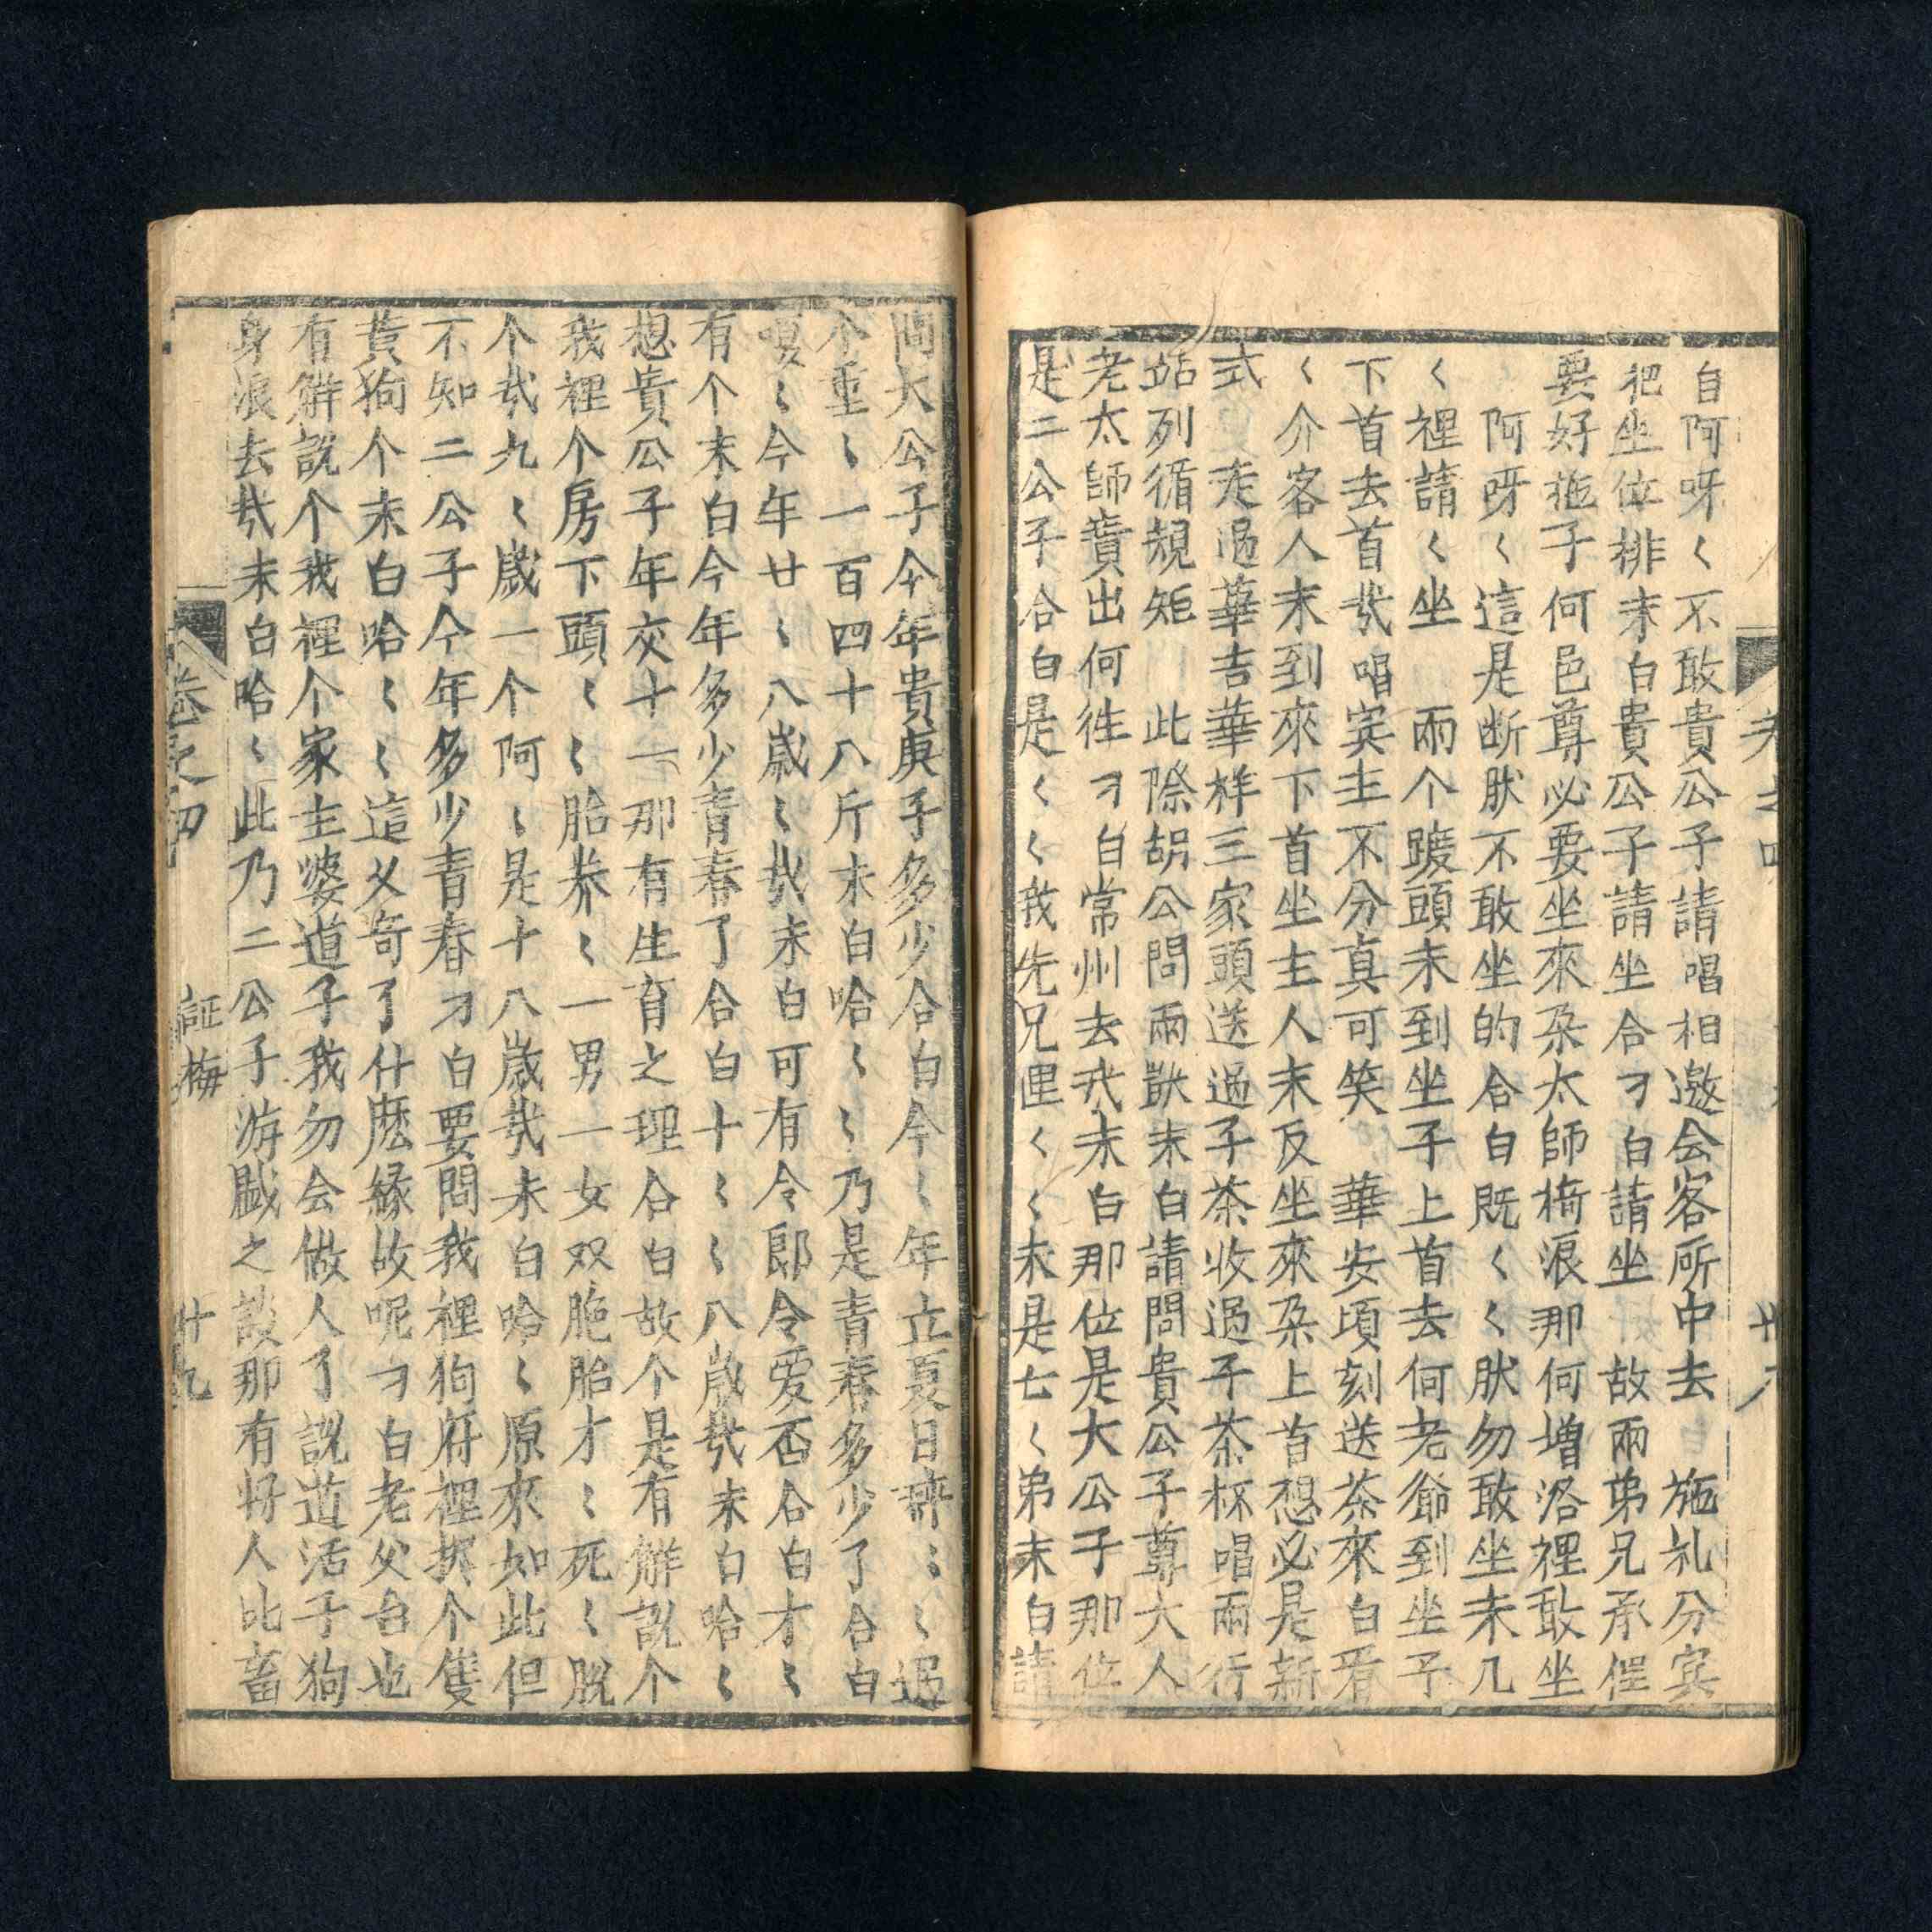 自阿呀く不敢貴公子請唱相邀会客所中去施礼分宾
把坐位排末白貴公子請坐合刁白請坐故兩弟兄承催
要好拖子何邑尊必要坐來朶太師椅浪那何增洛裡敢坐
阿呀く這是断肰不敢坐的合白既くく肰勿敢坐末几
く裡請く坐兩个踱頭末到坐子上首去何老爺到坐子
下首去首唱宾主不分真可笑華安頃刻送茶來白看
く介客人末到來下首坐主人末反坐來朶上首想必是新
式走過華吉華祥三家頭送過子茶收過子茶杯唱兩行
站列循規矩此際胡公問兩獃末白請問貴公子尊大人
老太師賷出何徃刁白常州去末白那位是大公子那位
是二公子合白是くく我先兄哩くく末是七く弟末白請
問大公子今年貴庚子多少合白今く年立夏日秤くく過
个重く一百四十八斤末白哈くく乃是青春多少了合白
嗄く今年廿く八歲く末白可有令郎令爱否合白才く
有个末白今年多少青春了合白十くく八歲末白哈く
想貴公子年交十一那有生育之理合白故个是有觧說个
我裡个房下頭くく胎养く一男一女双胞胎才く死く脫
个九く歲一个阿く是十八歲末白哈く原來如此但
不知二公子今年多少青春刁白要問我裡狗府裡个隻
黃狗个末白哈くく這父奇了什麽緣故呢刁白老父台也
有觧說个我裡个家主婆道子我勿会做人了說道活子狗
身浪去末白哈く此乃二公子游戯之談那有將人比畜
卷之四 証梅 廿九